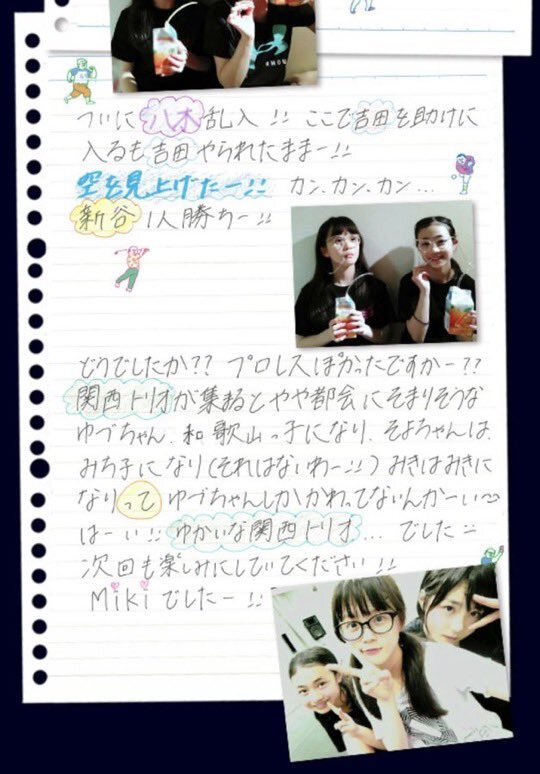 ついに八木乱入!! ここで吉田を助けに
入るも吉田やられたままー!!
空を見上げたー!! カン、カン、カン...
新谷1人勝ちー!!
どうでしたか?? プロレスぽかったですかー??
関西トリオが集まるとやや都会にそまりそうな
ゆづちゃん、和歌山っ子になり、そよちゃんは、
みち子になり(それはないわー!!)みきはみきに
なりって ゆづちゃんしかかわってないんかーい〜
はーい!! ゆかいな関西トリオ... でした!!
次回も楽しみにしていてください!!
Mikiでしたー!!